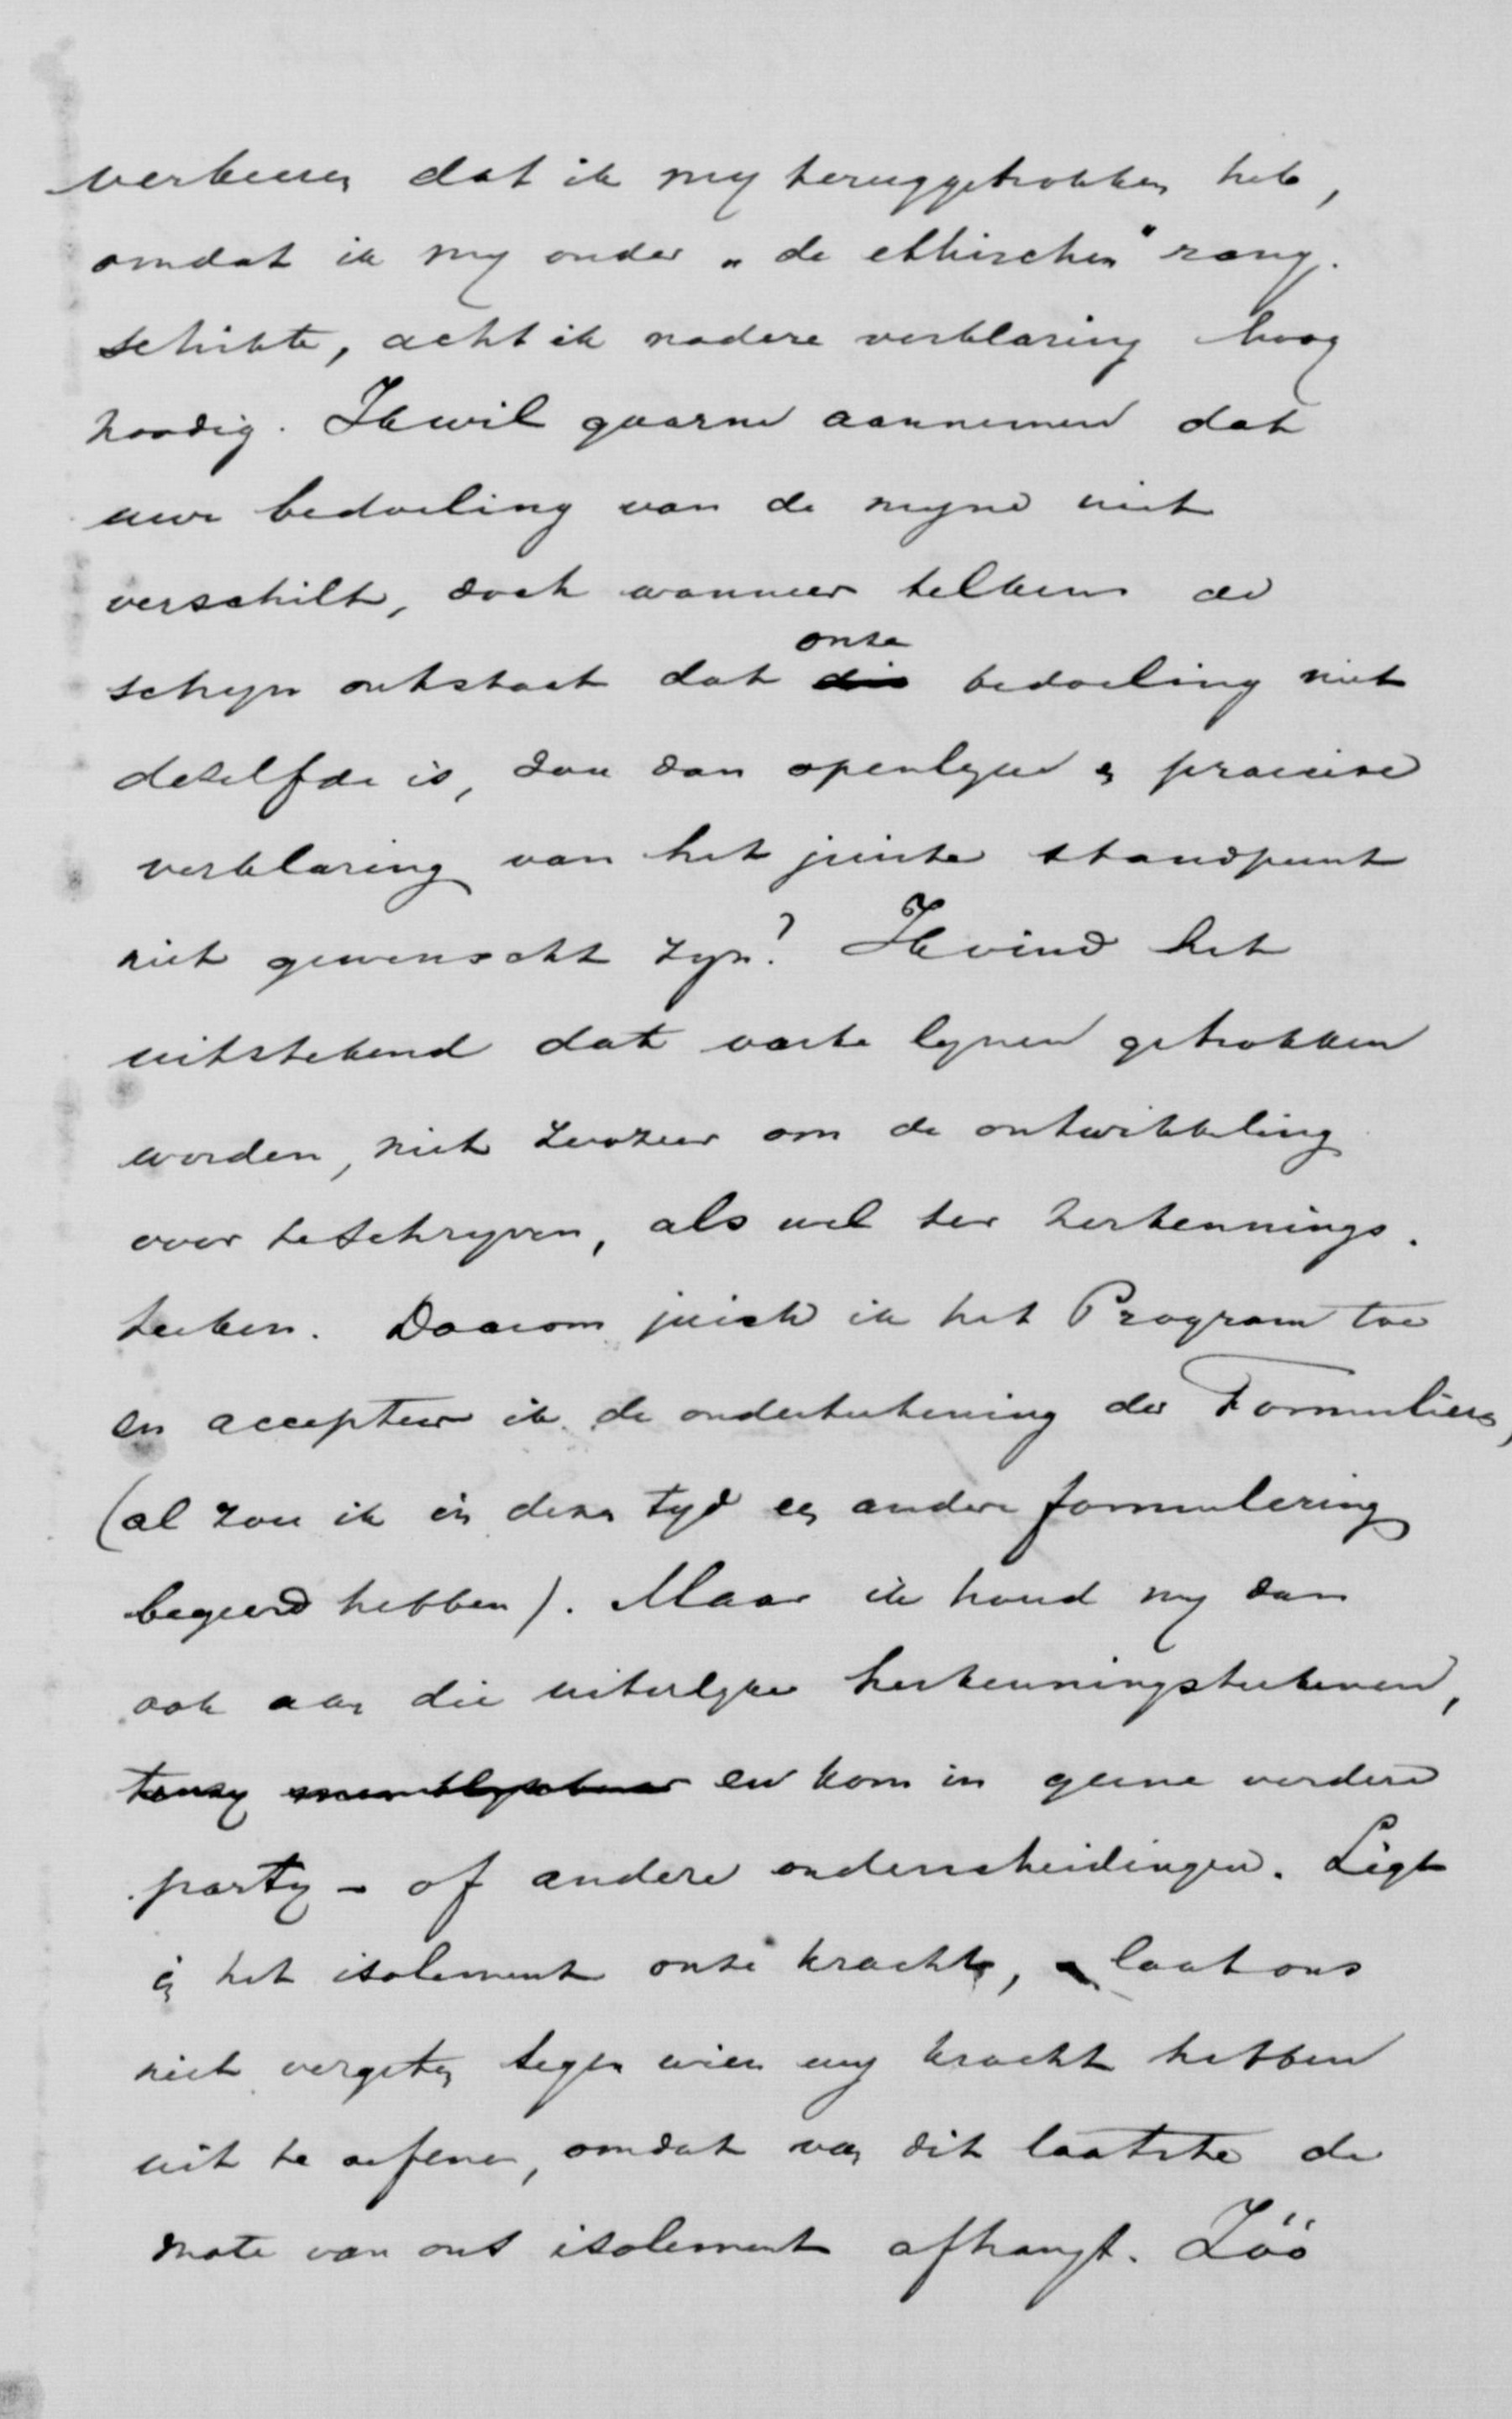 verkeeren dat ik my teruggetrokken heb,
omdat ik my onder „de ethischen" rang-
schikte, acht ik nadere verklaring hoog
noodig. Ik wil gaarne aannemen dat
uwe bedoeling van de myne niet
verschilt, doch wanneer telkens de
schyn ontstaat dat onze bedoeling niet
dezelfde is, zou dan openlyke en praecise
verklaring van het juiste standpunt
niet gewenscht zyn? Ik vind het
uitstekend dat vaste lynen getrokken
worden, niet zoozeer om de ontwikkeling
voor te schryven, als wel ter herkennings-
teeken. Daarom juich ik het Program toe
en accepteer ik de onderteekening der Formulieren,
(al zou ik in dezen tyd een andere formulering
begeerd hebben). Maar ik houd my dan
ook aan die uiterlyke herkenningsteekenen,
tenzy en kom in geene verdere
party- of andere onderscheidingen. Ligt
in het isolement onze kracht, laat ons
niet vergeten tegen wien wy kracht hebben
uit te oefenen, omdat van dit laatste de
mate van ons isolement afhangt. Zóó